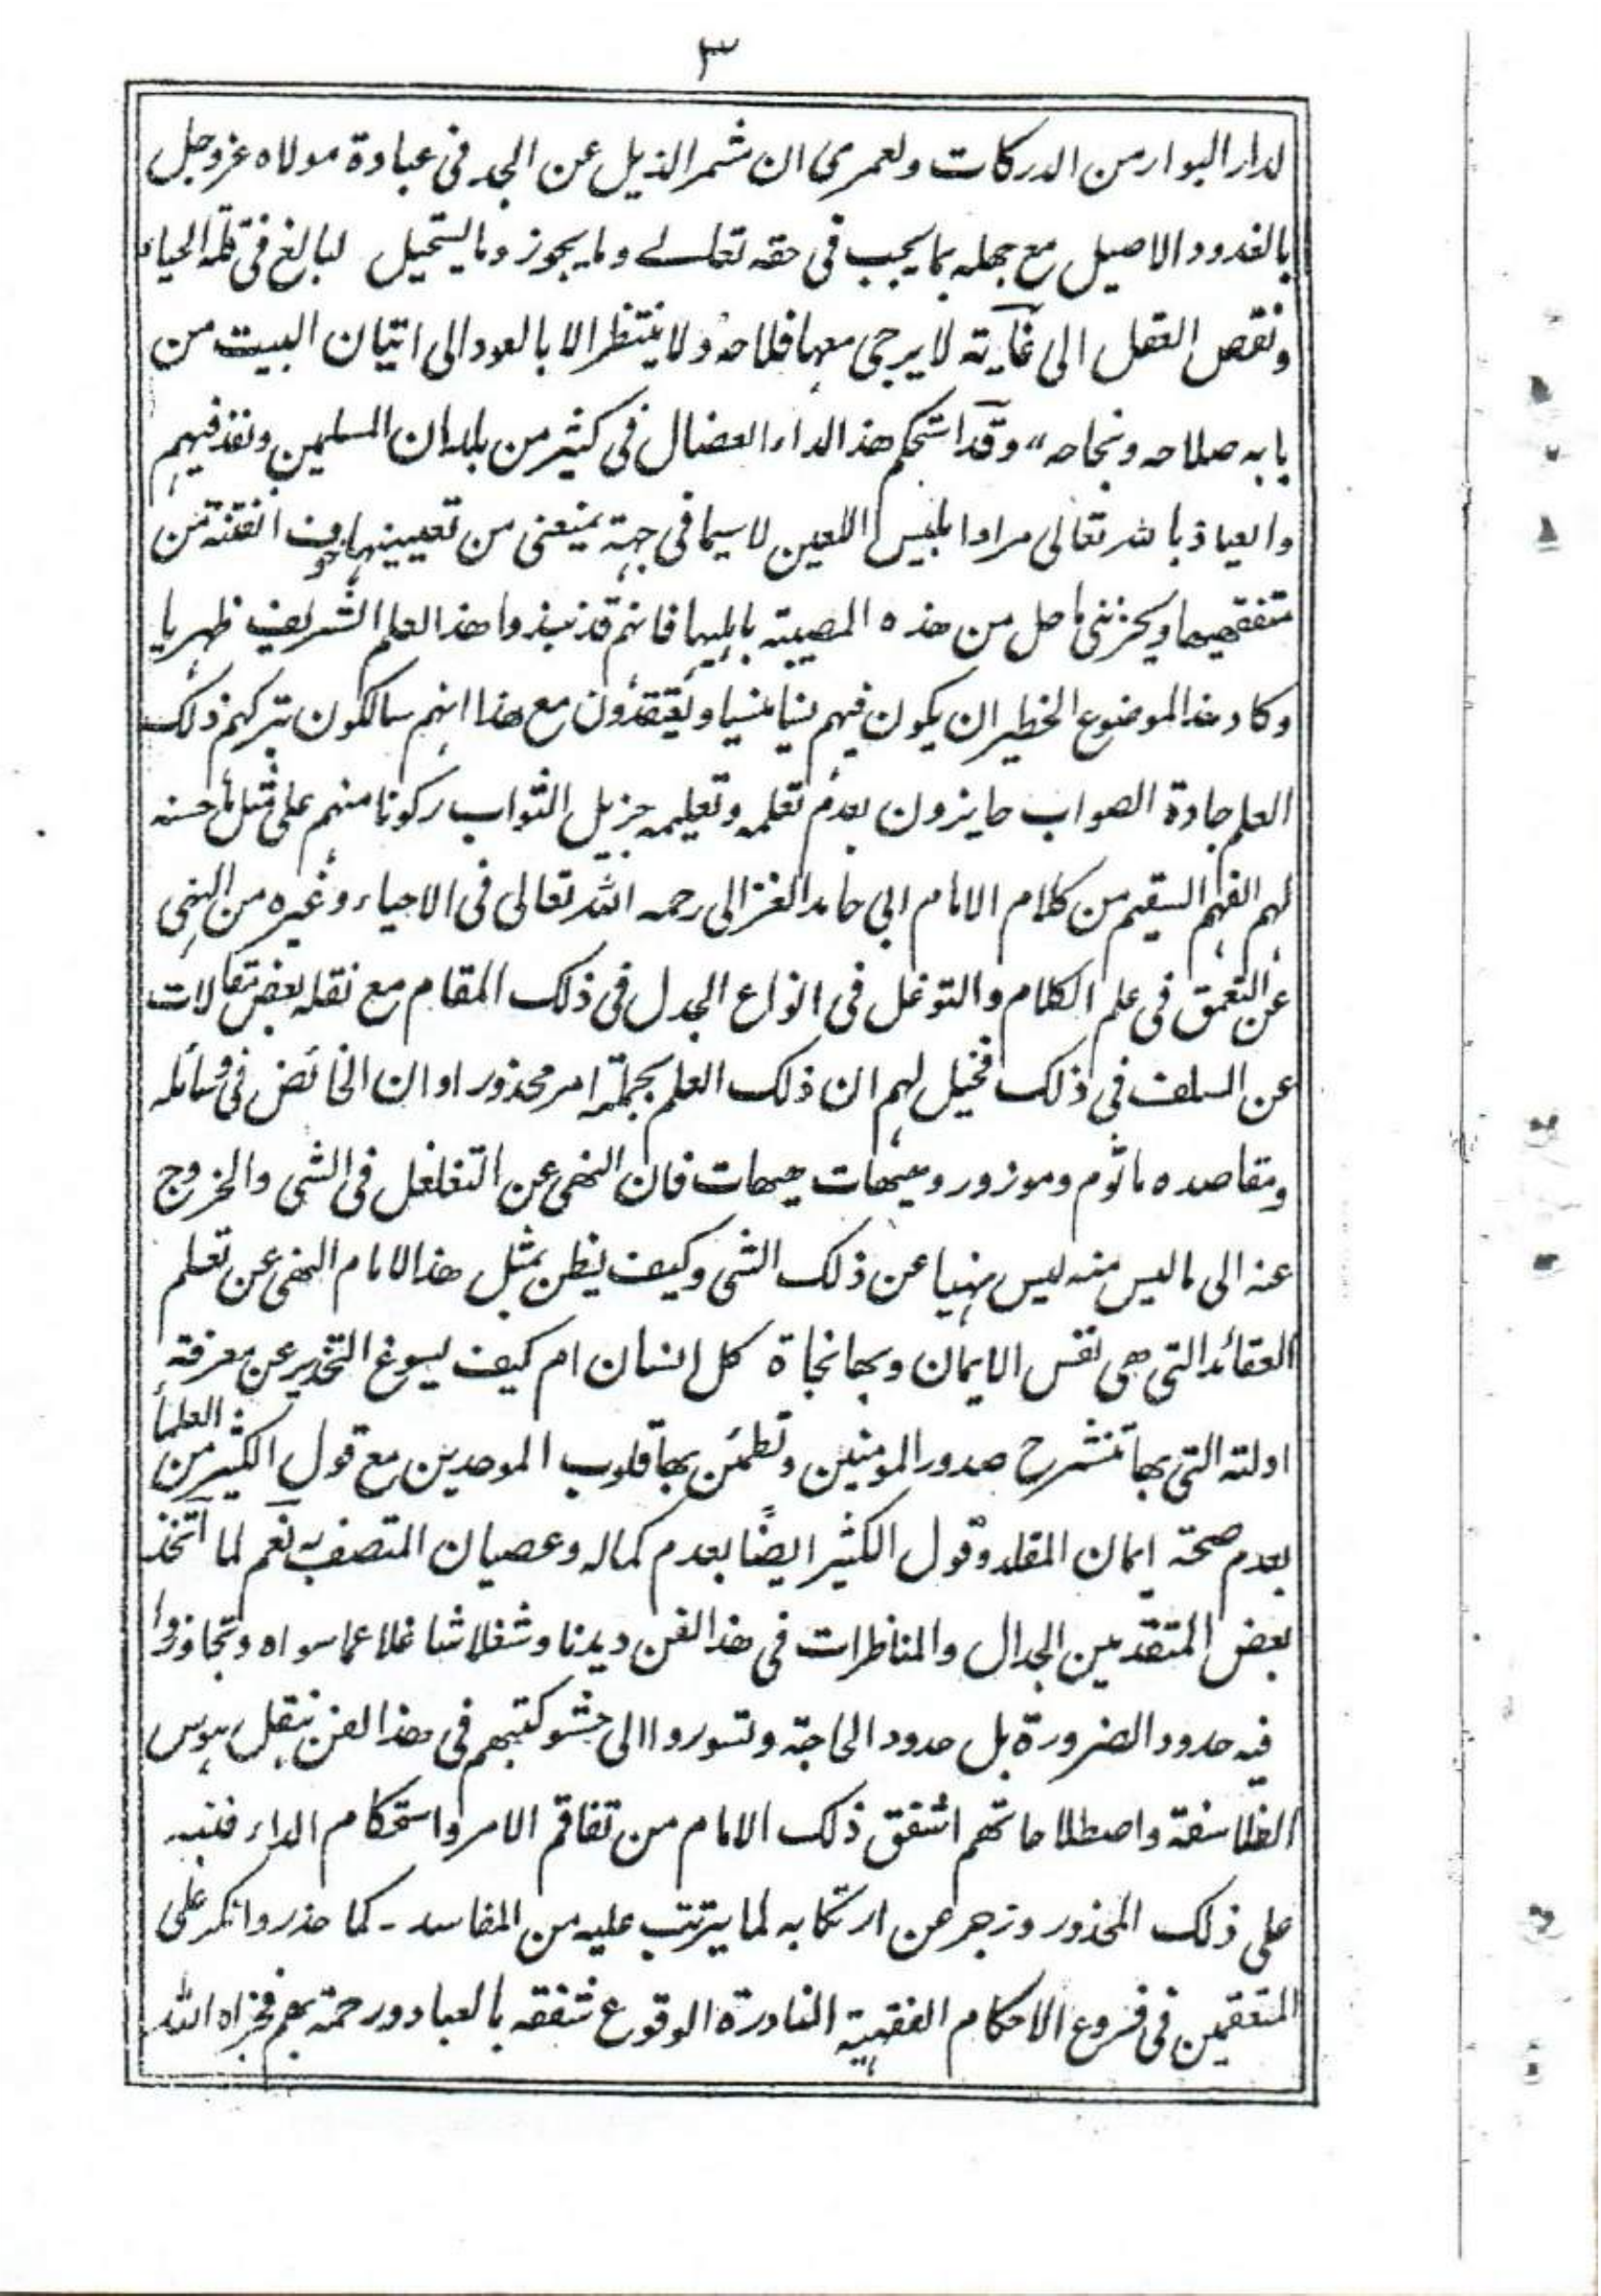 ٣
لدار البوار من الدركات ولعمرى ان شمر الذيل عن الجد فى عبادة مولاه عز وجل
بالغدو و الاصيل مع جهله بما يجب فى حقه تعالے وما يجوز وما يستحيل لبالغ فى قلة الحياء
ونقص العقل الى غاية لا يرجى معها فلاحه ولا ينتظر الا بالعود الى اتيان البيت من
بابه صلاحه ونجاحه ،، وقد استحكم هذ الداء العضال فى كثير من بلدان المسلمين ونفذ فيهم
والعياذ بالله تعالى مراد ابليس اللعين لاسيما فى جهة يمنعنى من تعيينها خوف الفتنة من
متفقهيها ويحزننى ما حل من هذه المصيبة باهليها فانهم قد نبذوا هذ العلم الشريف ظهريا
وكاد هذ الموضوع الخطير ان يكون فيهم نسيا منسيا ويعتقدون مع هذا انهم سالكون بتركهم ذلك
العلم جادة الصواب حايزون بعدم تعلمه وتعليمه جزيل الثواب ركونا منهم على مثل ما حسنه
لهم الفهم السقيم من كلام الامام ابى حامد الغزالى رحمه الله تعالى فى الاحياء وغيره من النهى
عن التعمق فى علم الكلام والتوغل فى انواع الجدل فى ذلك المقام مع نقله بعض مقالات
عن السلف فى ذلك فخيل لهم ان ذلك العلم بجملته امر محذور او ان الخائض فى وسائله
ومقاصده ماثوم وموزور وهيهات هيهات فان النهى عن التغلغل فى الشى والخروج
عنه الى ما ليس منه ليس نهيا عن ذلك الشى وكيف يظن بمثل هذ الامام النهى عن تعلم
العقائد التى هى نفس الايمان وبها نجاة كل انسان ام كيف يسوغ التحذير عن معرفة
ادلته التى بها تنشرح صدور المومنين وتطمئن بها قلوب الموحدين مع قول الكثير من العلمأ
بعدم صحة ايمان المقلد وقول الكثير ايضًا بعدم كماله وعصيان المتصف به نعم لما اتخذ
بعض المتقدمين الجدال والمناظرات فى هذ الفن ديدنا وشغلا شاغلا عما سواه وتجاوزوا
فيه حدود الضرورة بل حدود الحاجة وتسوروا الى حشو كتبهم فى هذ الفن بنقل هوس
الفلاسفة واصطلاحاتهم اشفق ذلك الامام من تفاقم الامر واستحكام الداء فنبه
على ذلك المحذور وزجر عن ارتكابه لما يترتب عليه من المفاسد - كما حذر وانكر على
المتعمقين فى فروع الاحكام الفقهية النادرة الوقوع شفقة بالعباد ورحمة بهم فجزاه الله